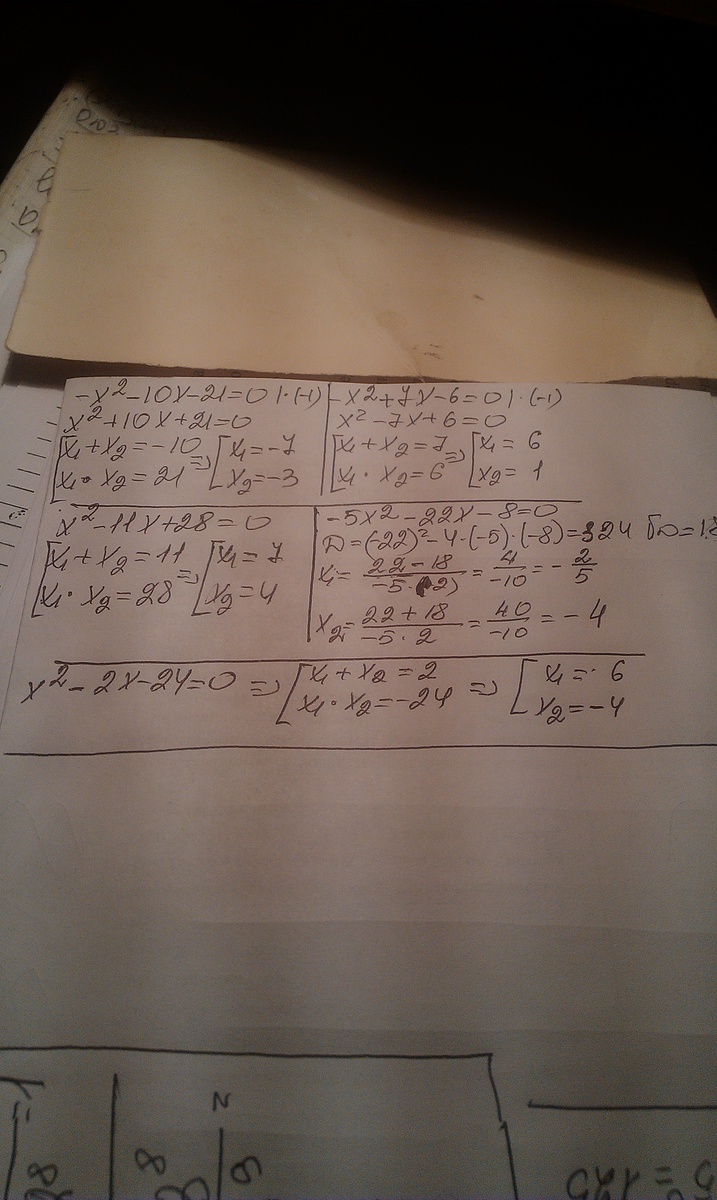 -x²-10x-21=0 |·(-1)
x²+10x+21=0
[x₁+x₂=-10 => [x₁=-7
[x₁·x₂=21 [x₂=-3
-x²+7x-6=0 |·(-1)
x²-7x+6=0
[x₁+x₂=7 => [x₁=6
[x₁·x₂=6 [x₂=1
x²-11x+28=0
[x₁+x₂=11 => [x₁=7
[x₁·x₂=28 [x₂=4
-5x²-22x-8=0
D=(-22)²-4·(-5)·(-8)=324 √D=18
x₁=(22-18)/(-5·2)=4/-10=-2/5
x₂=(22+18)/(-5·2)=40/-10=-4
x²-2x-24=0 => [x₁+x₂=2 => [x₁=6
[x₁·x₂=-24 [x₂=-4